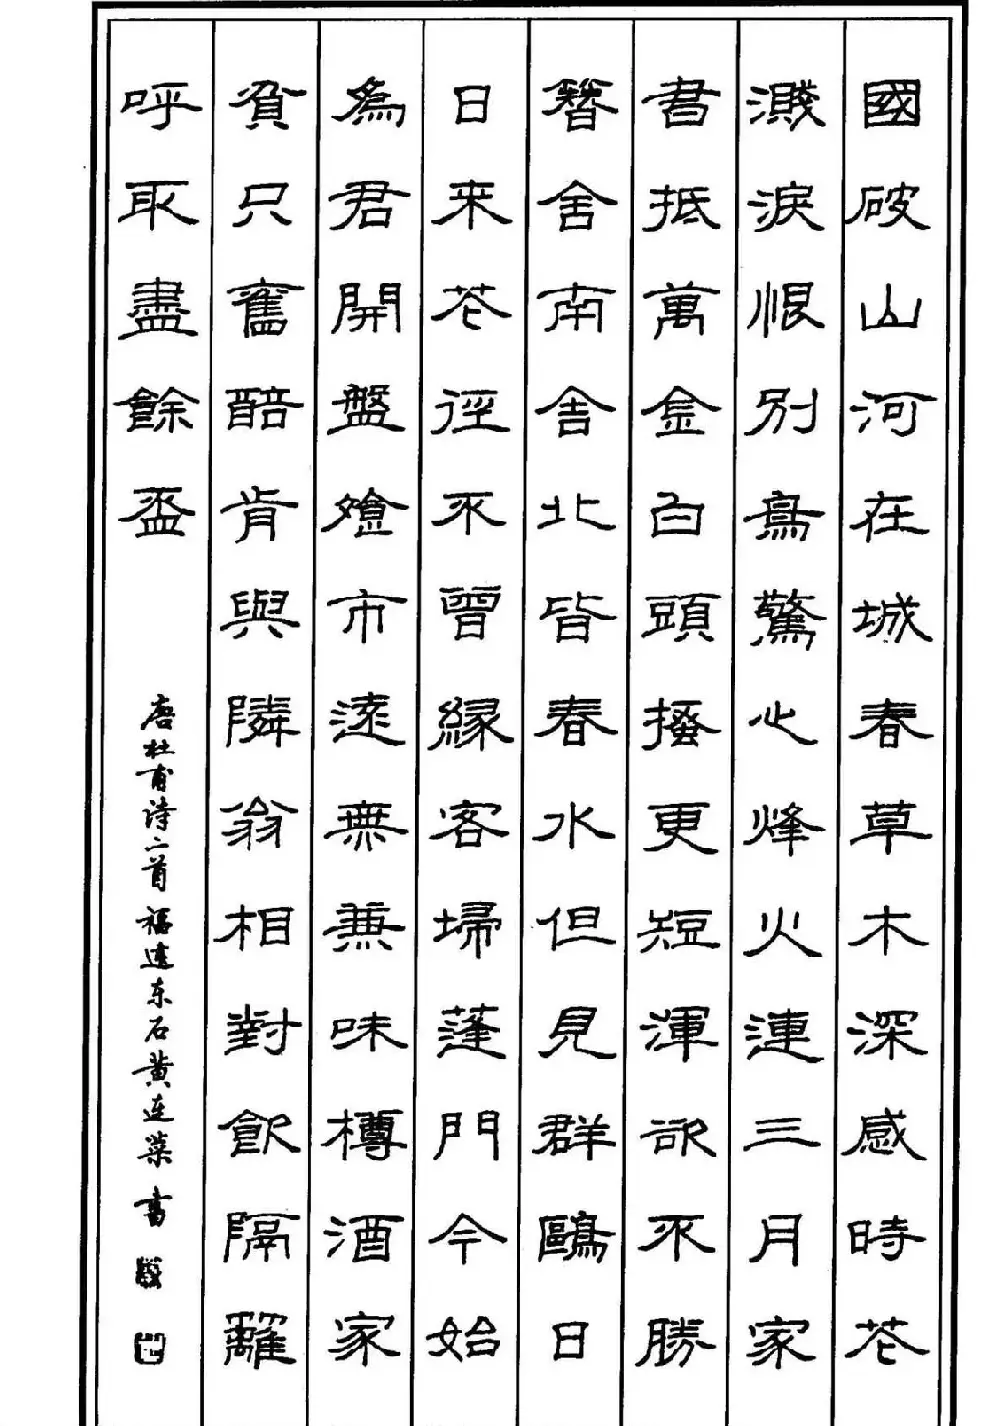 國破山河在城春草木深感時花
濺淚恨別鳥驚心烽火連三月家
書抵萬金白頭搔更短渾欲不勝
簪舍南舍北皆春水但見群鷗日
日来花徑不曾緣客掃蓬門今始
為君開盤飧市遠無兼味樽酒家
貧只舊醅肯與隣翁相對飲隔籬
呼取盡餘盃
唐杜甫诗二首 福建东石黄连荣书